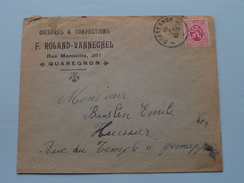 MESURES & CONFECTIONS
F. ROLAND-VANNECHEL
Rue Monsville, 361
QUAREGNON
QUAREGNON
Monsieur
Buslin Emile
Huissier
Rue du Temple à Jemappes